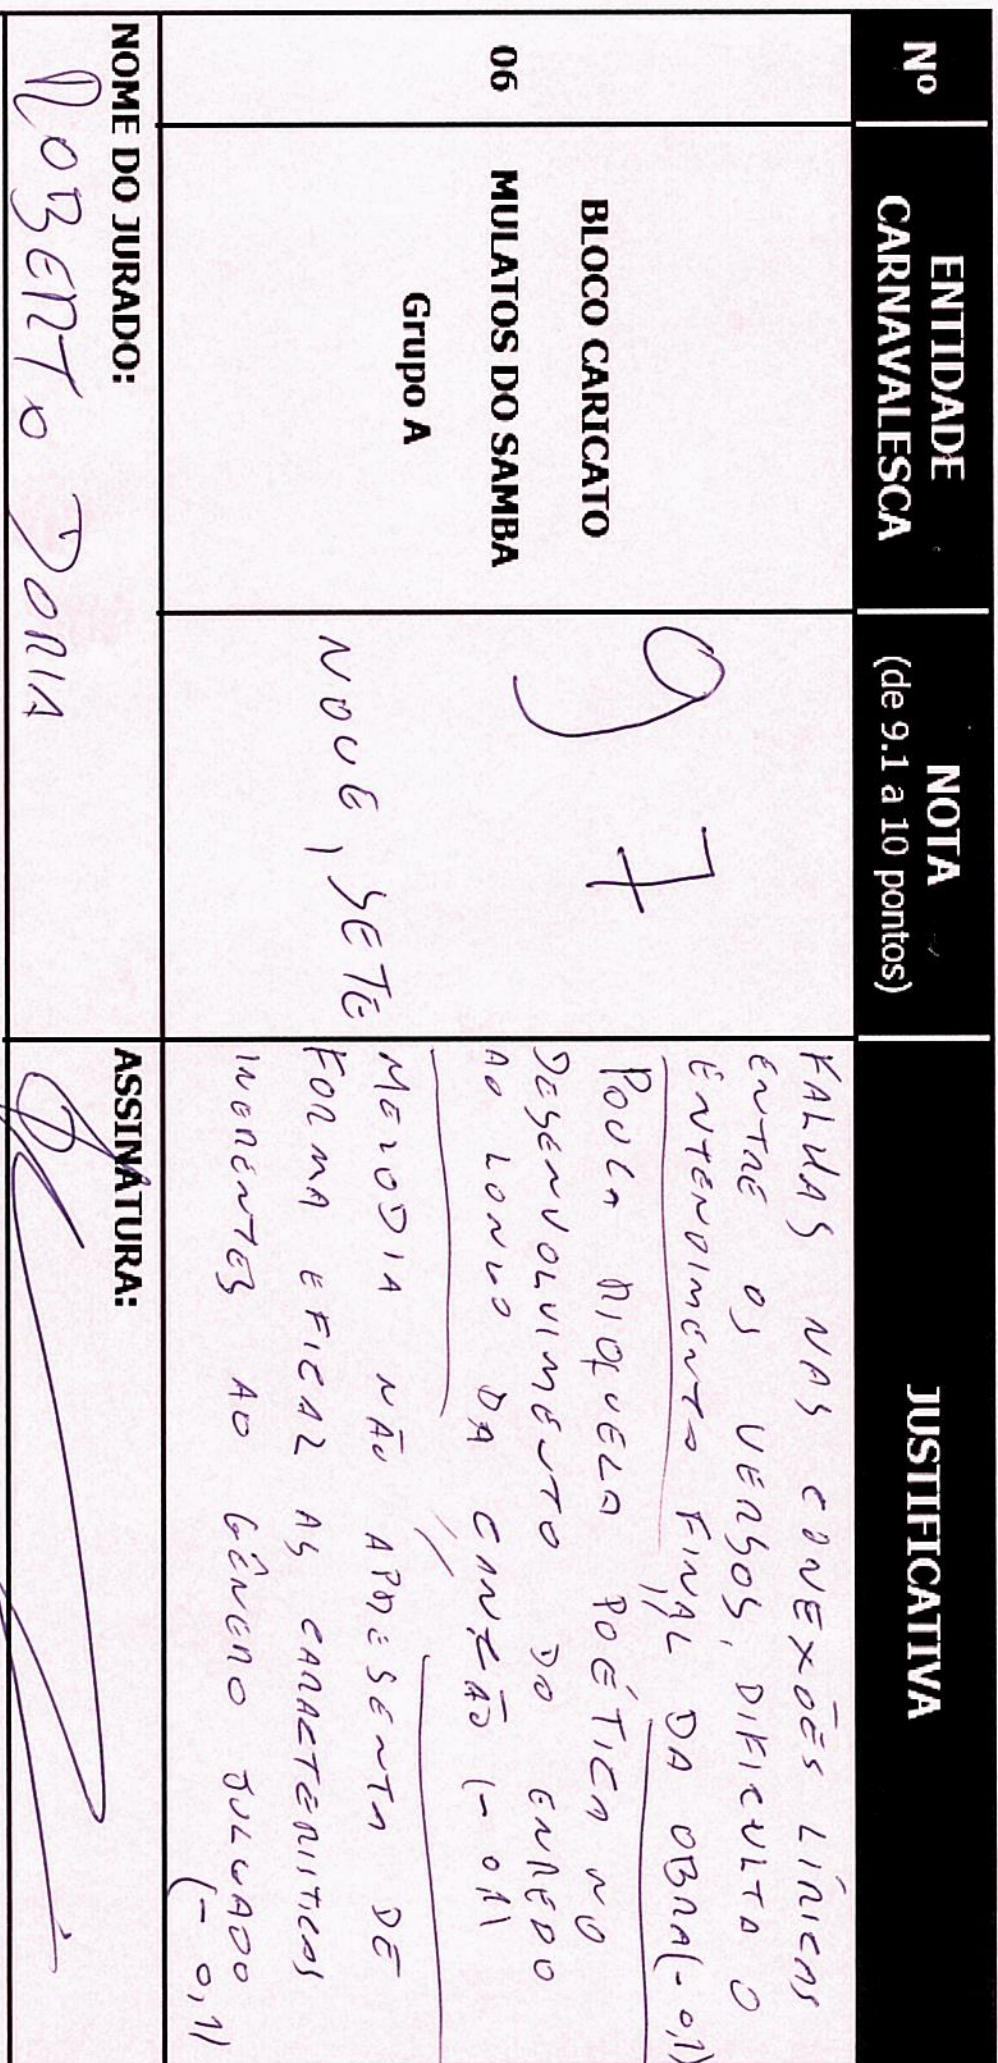 Nº
ENTIDADE
CARNAVALESCA
NOTA
(de 9.1 a 10 pontos)
JUSTIFICATIVA
06
BLOCO CARICATO
MULATOS DO SAMBA
Grupo A
9 7
NOVE, SETE
FALHAS NAS CONEXÕES LÍRICAS
ENTRE OS VERSOS, DIFICULTA O
ENTENDIMENTO FINAL DA OBRA (-0,1)
POUCA RIQUEZA POÉTICA NO
DESENVOLVIMENTO DO ENREDO
AO LONGO DA CANÇÃO (-0,1)
MELODIA NÃO APRESENTA DE
FORMA EFICAZ AS CARACTERISTICAS
INERENTES AO GÊNERO JULGADO
(-0,1)
NOME DO JURADO:
ROBERTO DORIA
ASSINATURA: